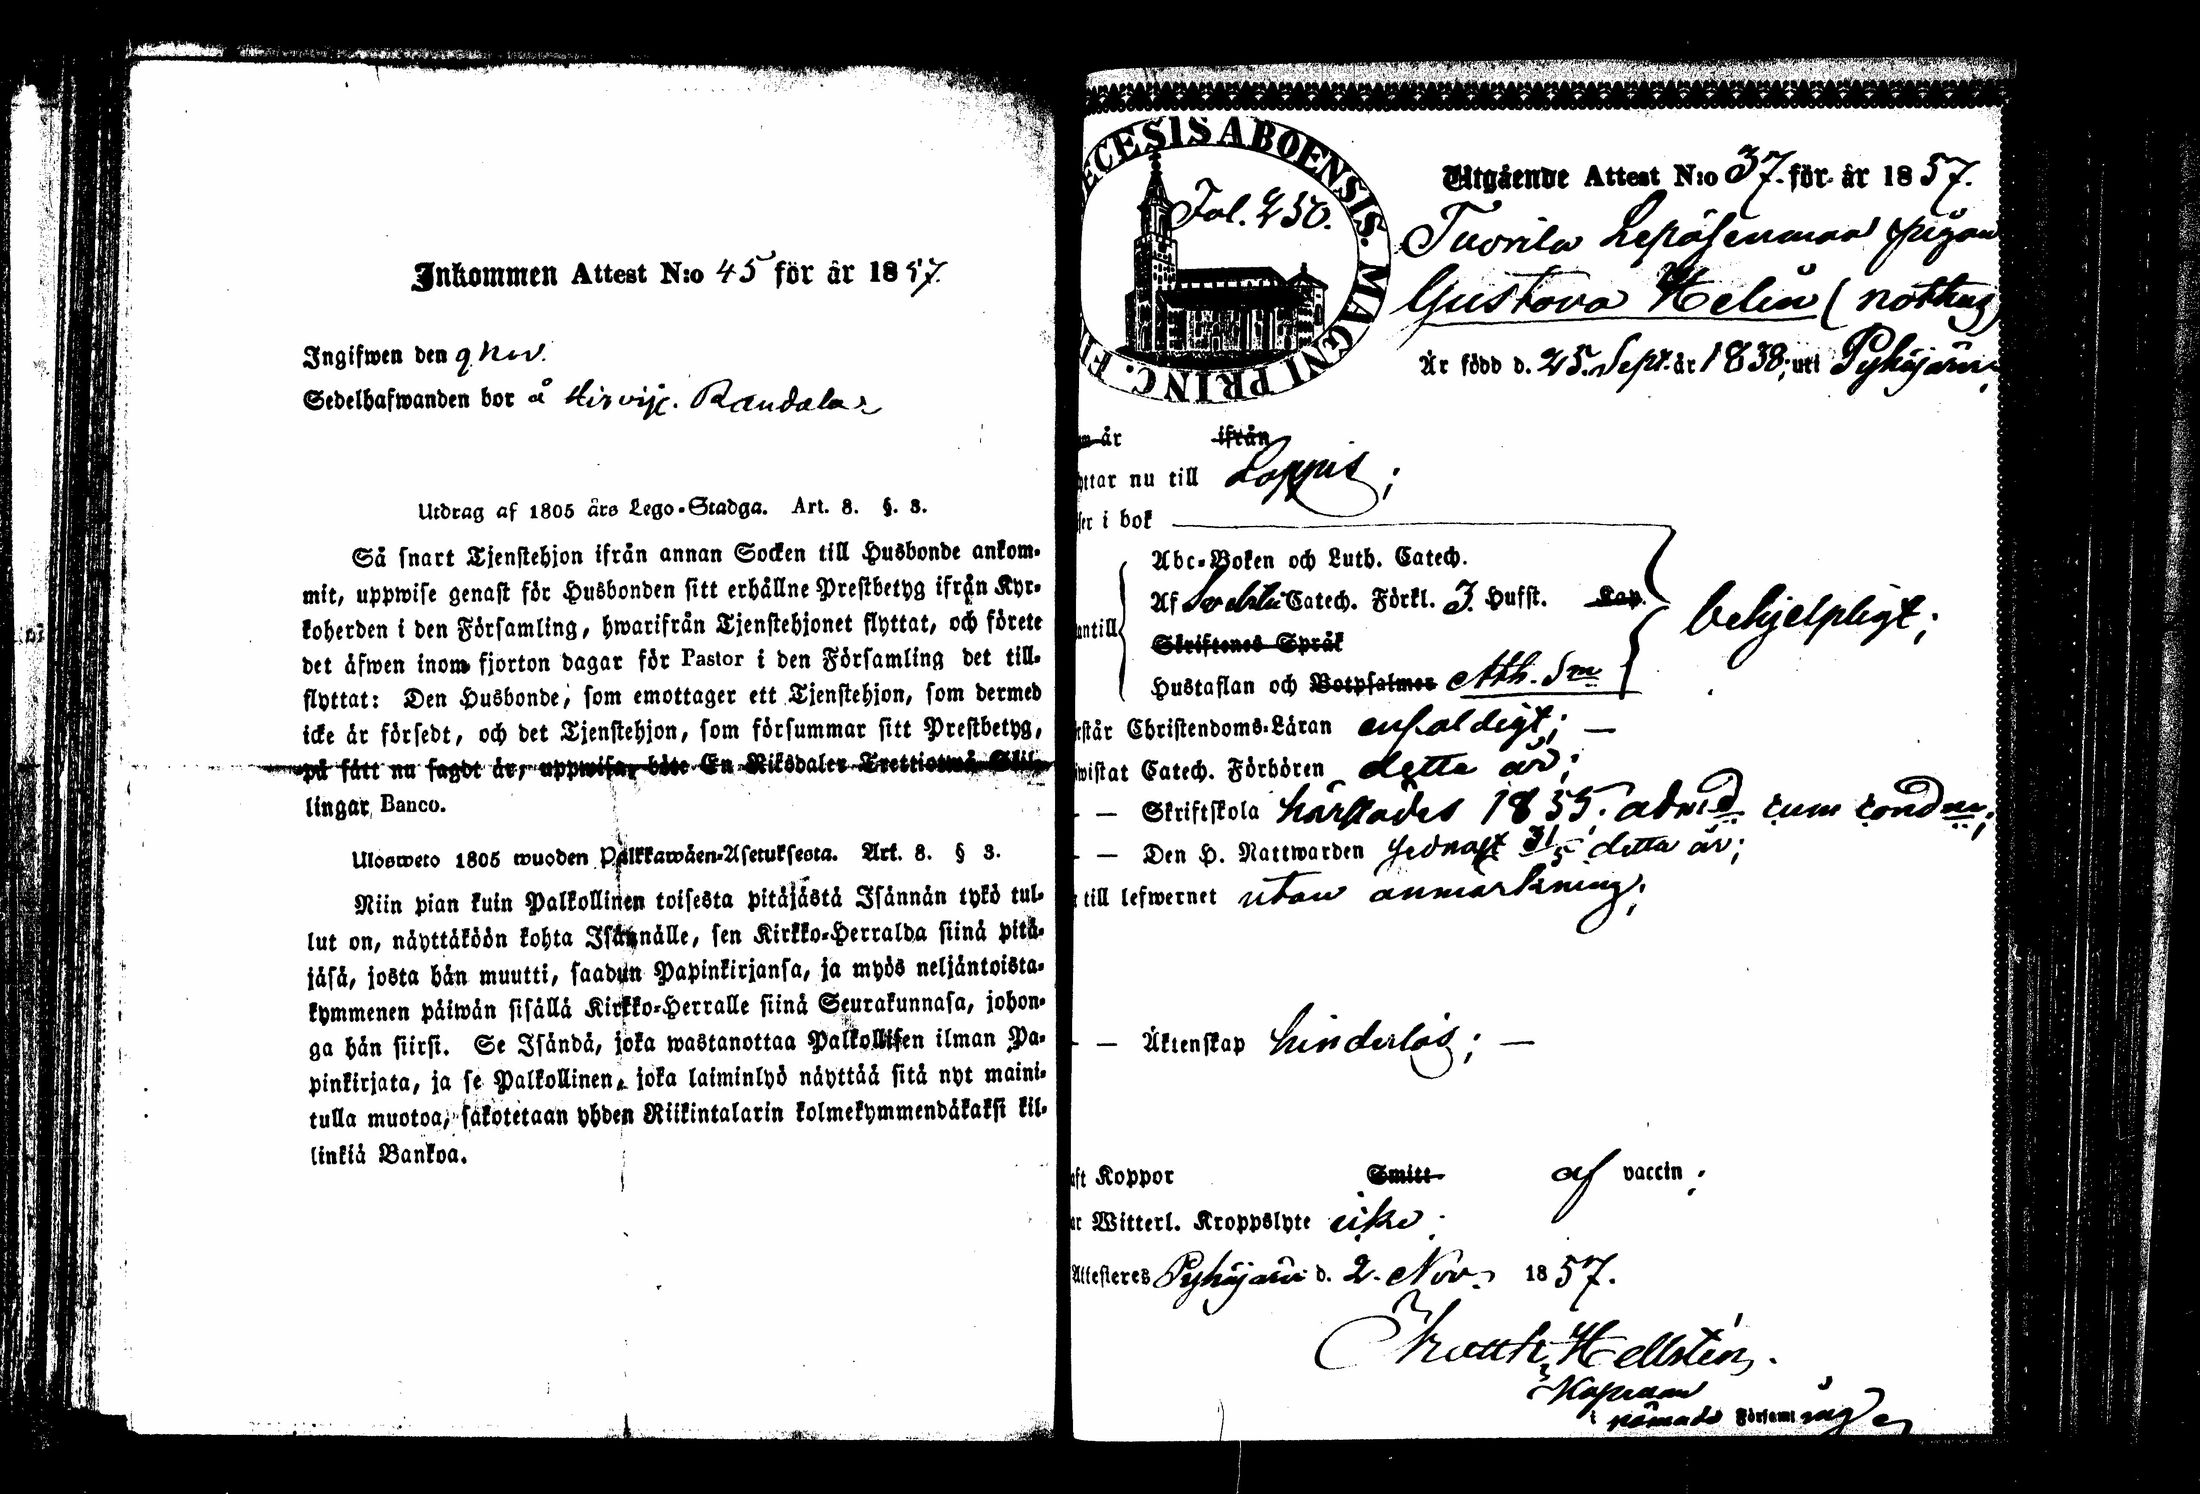 Inkommen Attest N:o 45 för år 1857.
Ingifwen den 9 Nov.
Sedelhafwanden bor å Hirvij. Randala
Utdrag af 1805 års Lego-Stadga. Art. 8. §. 3.
Så snart Tjenstehjon ifrån annan Socken till Husbonde ankom-
mit, uppwise genast för Husbonden sitt erhållne Prestbetyg ifrån Kyr-
koherden i den Församling, hwarifrån Tjenstehjonet flyttat, och förete
det äfwen inom fjorton dagar för Pastor i den Församling det till-
flyttat: Den Husbonde, som emottager ett Tjenstehjon, som dermed
icke är försedt, och det Tjenstehjon, som försummar sitt Prestbetyg,
på sätt nu sagdt är, uppwisa, böte En Riksdaler Trettiotwå Skil-
lingar Banco.
Ulosweto 1805 wuoden Palkkawäen-Asetuksesta. Art. 8. § 3.
Niin pian kuin Palkollinen toisesta pitäjästä Isännän tykö tul-
lut on, näyttäköön kohta Isännälle, sen Kirkko-Herralda siinä pitä-
jäsä, josta hän muutti, saadun Papinkirjansa, ja myös neljäntoista-
kymmenen päiwän sisällä Kirkko-Herralle siinä Seurakunnasa, johon-
ga hän siirsi. Se Isändä, joka wastanottaa Palkollisen ilman Pa-
pinkirjata, ja se Palkollinen, joka laiminlyö näyttää sitä nyt maini-
tulla muotoa, sakotetaan yhden Riikintalarin kolmekymmendäkaksi kil-
linkiä Bankoa.
ECESIS ABOENSIS. MAGNI PRINC. FI
Fol. 250.
Utgående Attest N:o 37. för år 1857.
Tuorila Lepäsenmaa pigan
Gustava Helin (
Är född d. 25. Sept. år 1838; uti Pyhäjärvi
år ifrån
ttar nu till Loppis;
ser i bok
Abc-Boken och Luth. Catech.
Af Catech. Förkl. 3. Hufst. Kap.
antill
Skriftenes Språk
behjelpligt;
Hustaflan och Botpsalmer Ath. Sm
rstår Christendoms-Läran enfaldigt; —
wistat Catech. Förhören detta år;
— Skriftskola 1855. admd cum condne;
— Den H. Nattwarden sednast 31/5 detta år;
till lefwernet utan anmärkning;
— Äktenskap hinderlös; —
aft Koppor Smitt af vaccin;
ar Witterl. Kroppslyte icke.
Attesteres Pyhäjärvi d. 2. Nov. 1857.
Hellstén.
Kapellan
i nämnde Församling